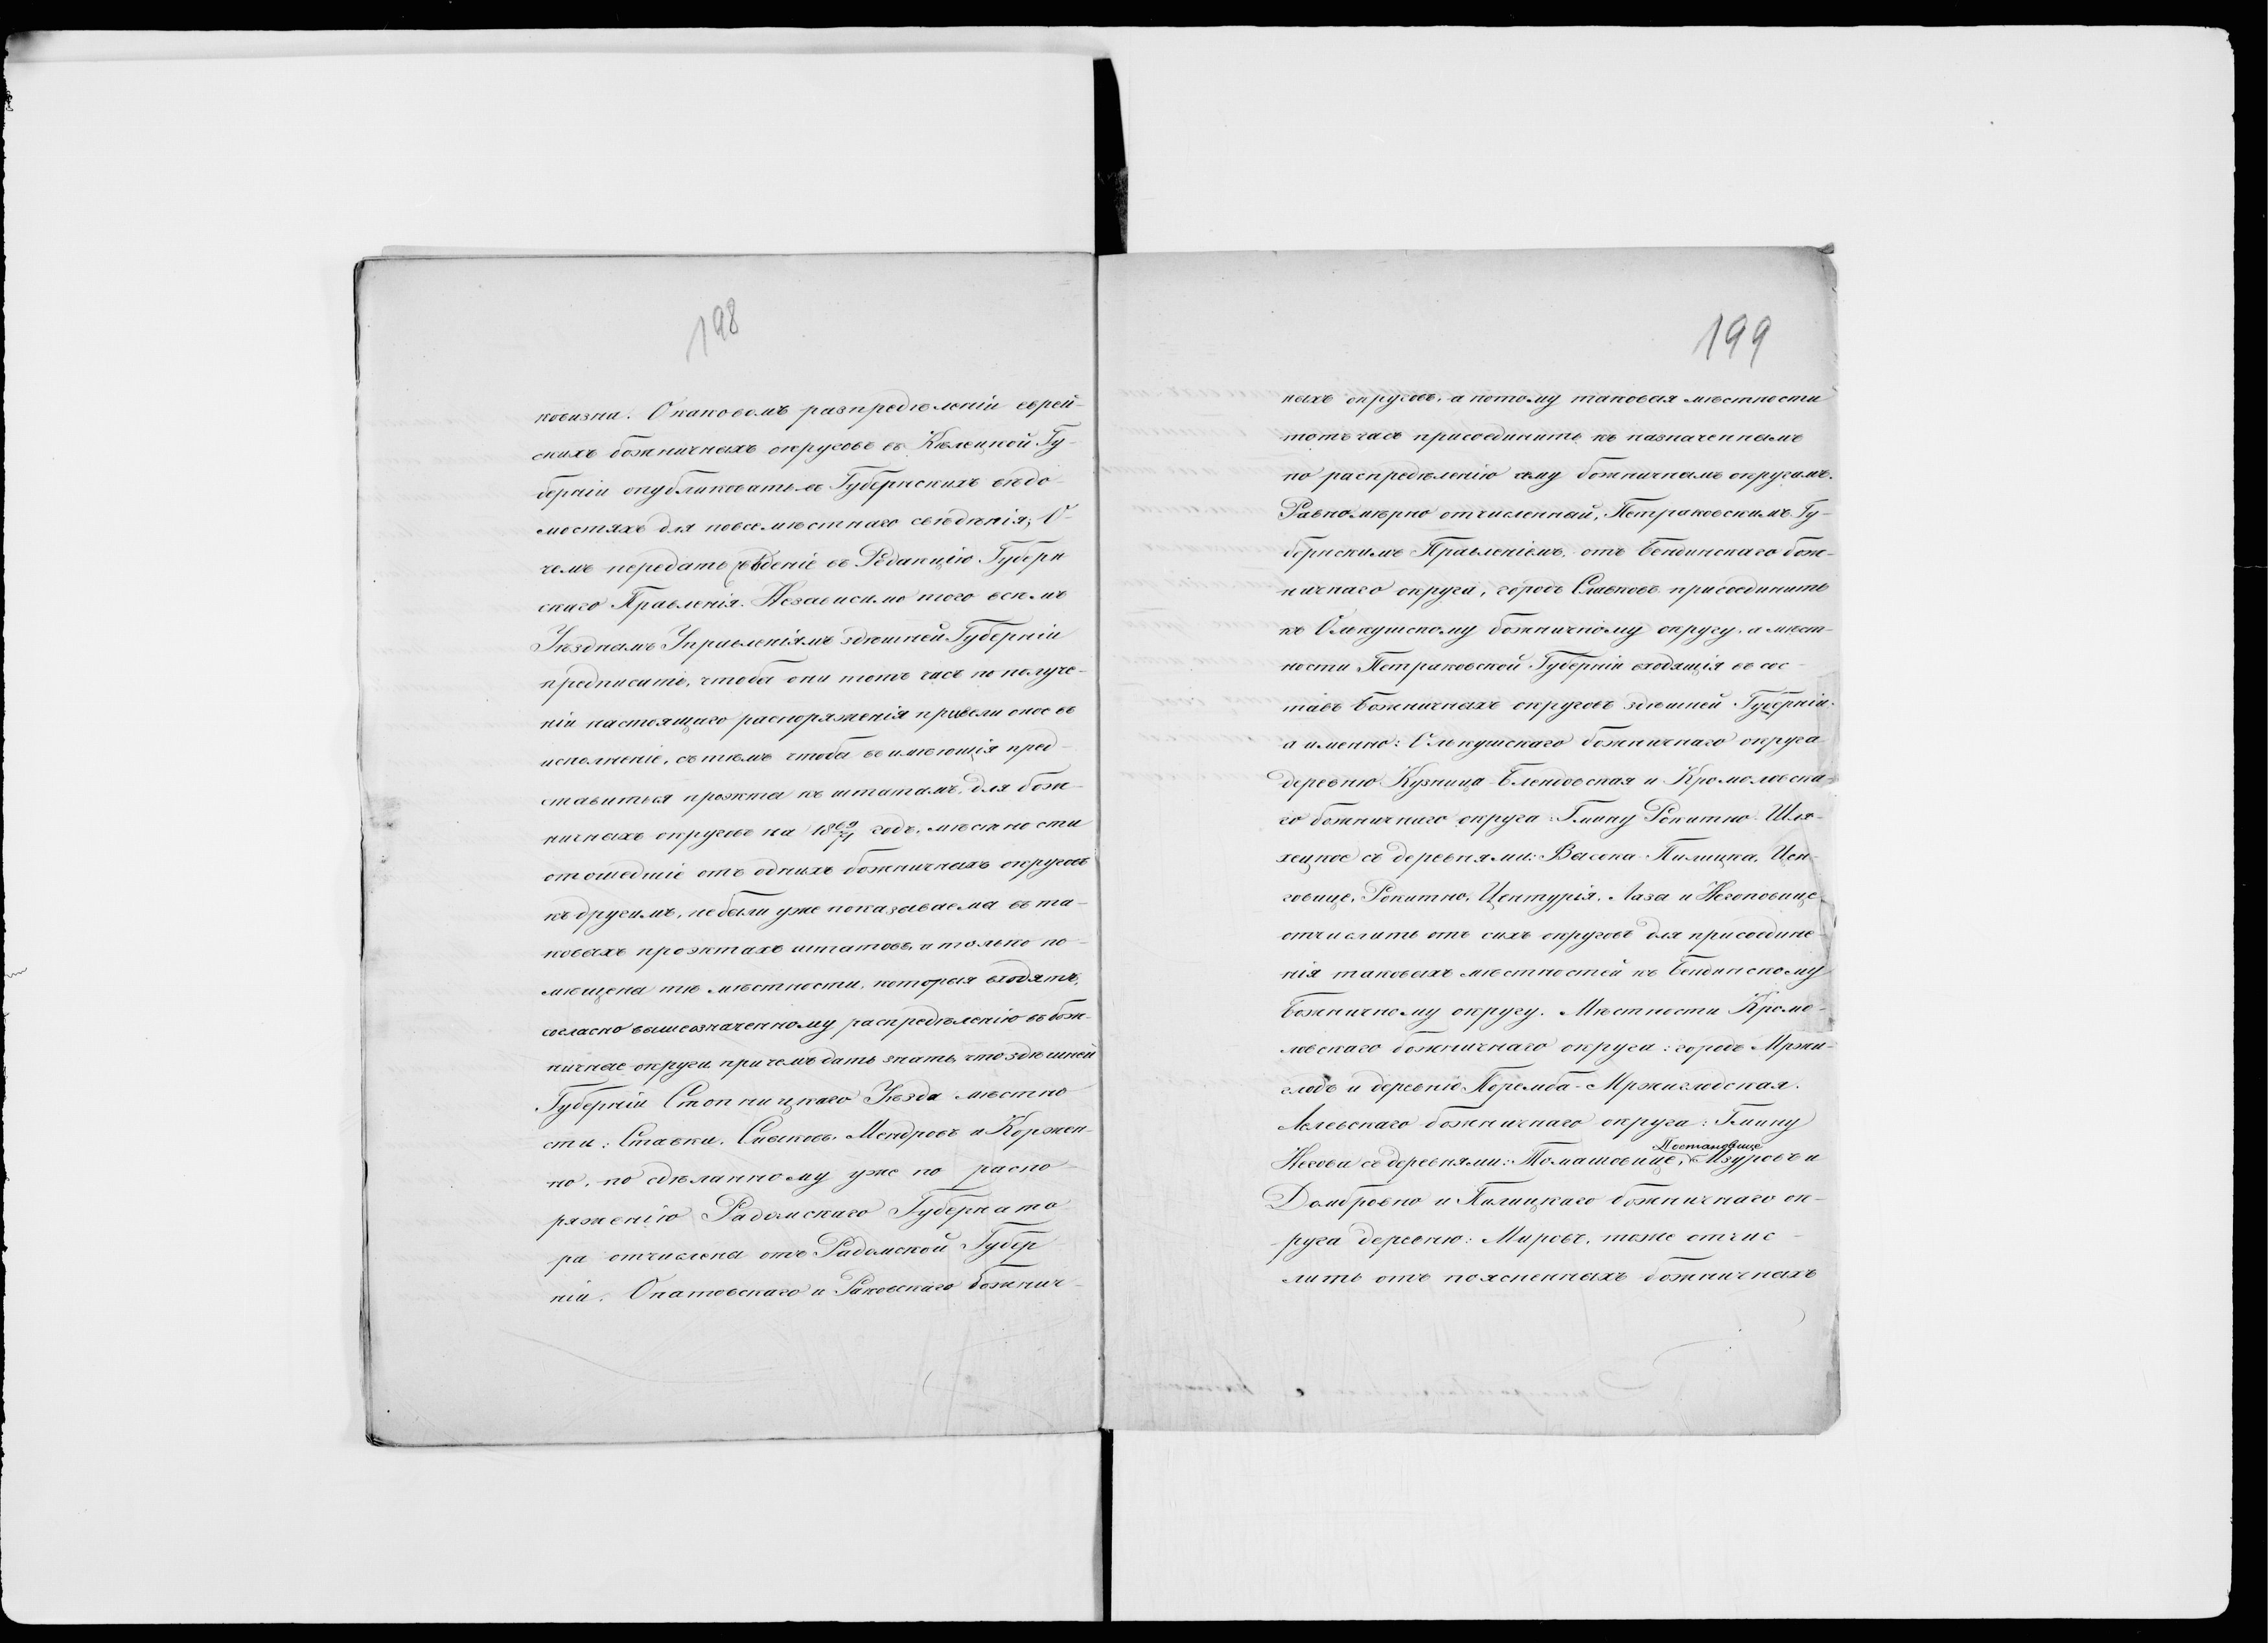 198
ковизни. О каковомъ разпредѣленіи еврей-
скихъ божничныхъ округовъ въ Кѣлецкой Гу-
берніи опубликовать въ Губернскихъ вѣдо-
мостяхъ для повсемѣстнаго свѣдѣнія; О
чемъ передать въ Редакцію Губерн
скаго Правленія. Независимо того всѣмъ
Уѣзднымъ Управленіямъ здѣшней Губерніи
предписать, чтобы они тотъ часъ по получе-
ніи настоящаго распоряженія привели оное въ
исполненіе, съ тѣмъ чтобы въ имѣющія пред-
ставиться проэкты къ штатамъ, для бож-
ничныхъ округовъ на 1869/71 годъ, мѣстности
отошедшіе отъ однихъ божничныхъ округовъ
къ другимъ, не были уже показываемы въ та-
ковыхъ проэктахъ штатовъ, и только по-
мѣщены тѣ мѣстности, которыя входятъ,
согласно вышеозначенному распредѣленію въ бож-
ничные округи причемъ дать знать, что здѣшней
Губерніи Стопницкаго Уѣзда мѣстно
сти: Ставки, Мендровъ и Коржен-
но, по сдѣланному уже по распо-
ряженію Радомскаго Губернато
ра отчислены отъ Радомской Губер
ніи, Опатовскаго и Раковскаго божнич-
199
ныхъ округовъ, а потому таковыя мѣстности
тотъ часъ присоединить къ назначеннымъ
по распредѣленію сему божничнымъ округамъ.
Равномѣрно отчисленный, Петраковскимъ Гу-
бернскимъ Правленіемъ, отъ Бендинскаго бож-
ничнаго округа, городъ Славковъ присоединить
къ Олькушскому божничному округу, а мѣст-
ности Петраковской Губерніи входящія въ сос-
тавъ Божничныхъ округовъ здѣшней Губерніи,
а именно: Олькушскаго божничнаго округа
деревню Кузница-Блендовская и Кромоловска-
го божничнаго округа: Гмину Рокитно-Шля-
хецкое съ деревнями: Высока-Пилицка,
Рокитно, Центурія, Лазы и Негоновице
отчислить отъ сихъ округовъ для присоедине-
нія таковыхъ мѣстностей къ Бендинскому
Божничному округу. Мѣстности Кромо-
ловскаго божничнаго округа: городъ Мржи-
глодъ и деревню Поремба-Мржиглодская.
Лелевскаго божничнаго округа: Гмину
Постановице
Негова съ деревнями: Томашовице, Мзуровъ и
Домбровно и Пилицкаго божничнаго ок-
руга деревню: Мировъ, тоже отчис-
лить отъ поясненныхъ божничныхъ